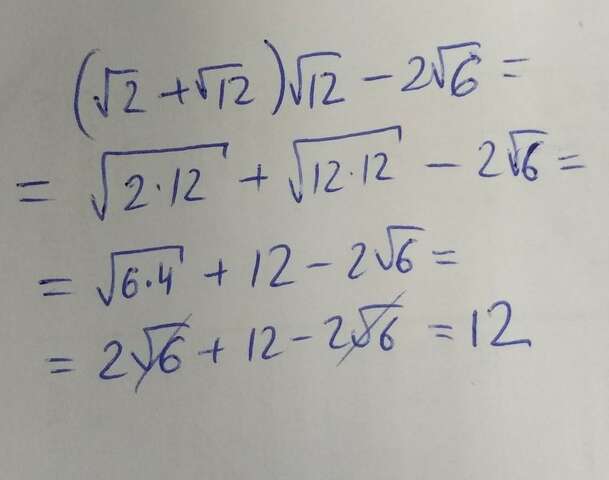 (√2 + √12)√12 − 2√6 =
= √(2·12) + √(12·12) − 2√6 =
= √(6·4) + 12 − 2√6 =
= 2√6 + 12 − 2√6 = 12